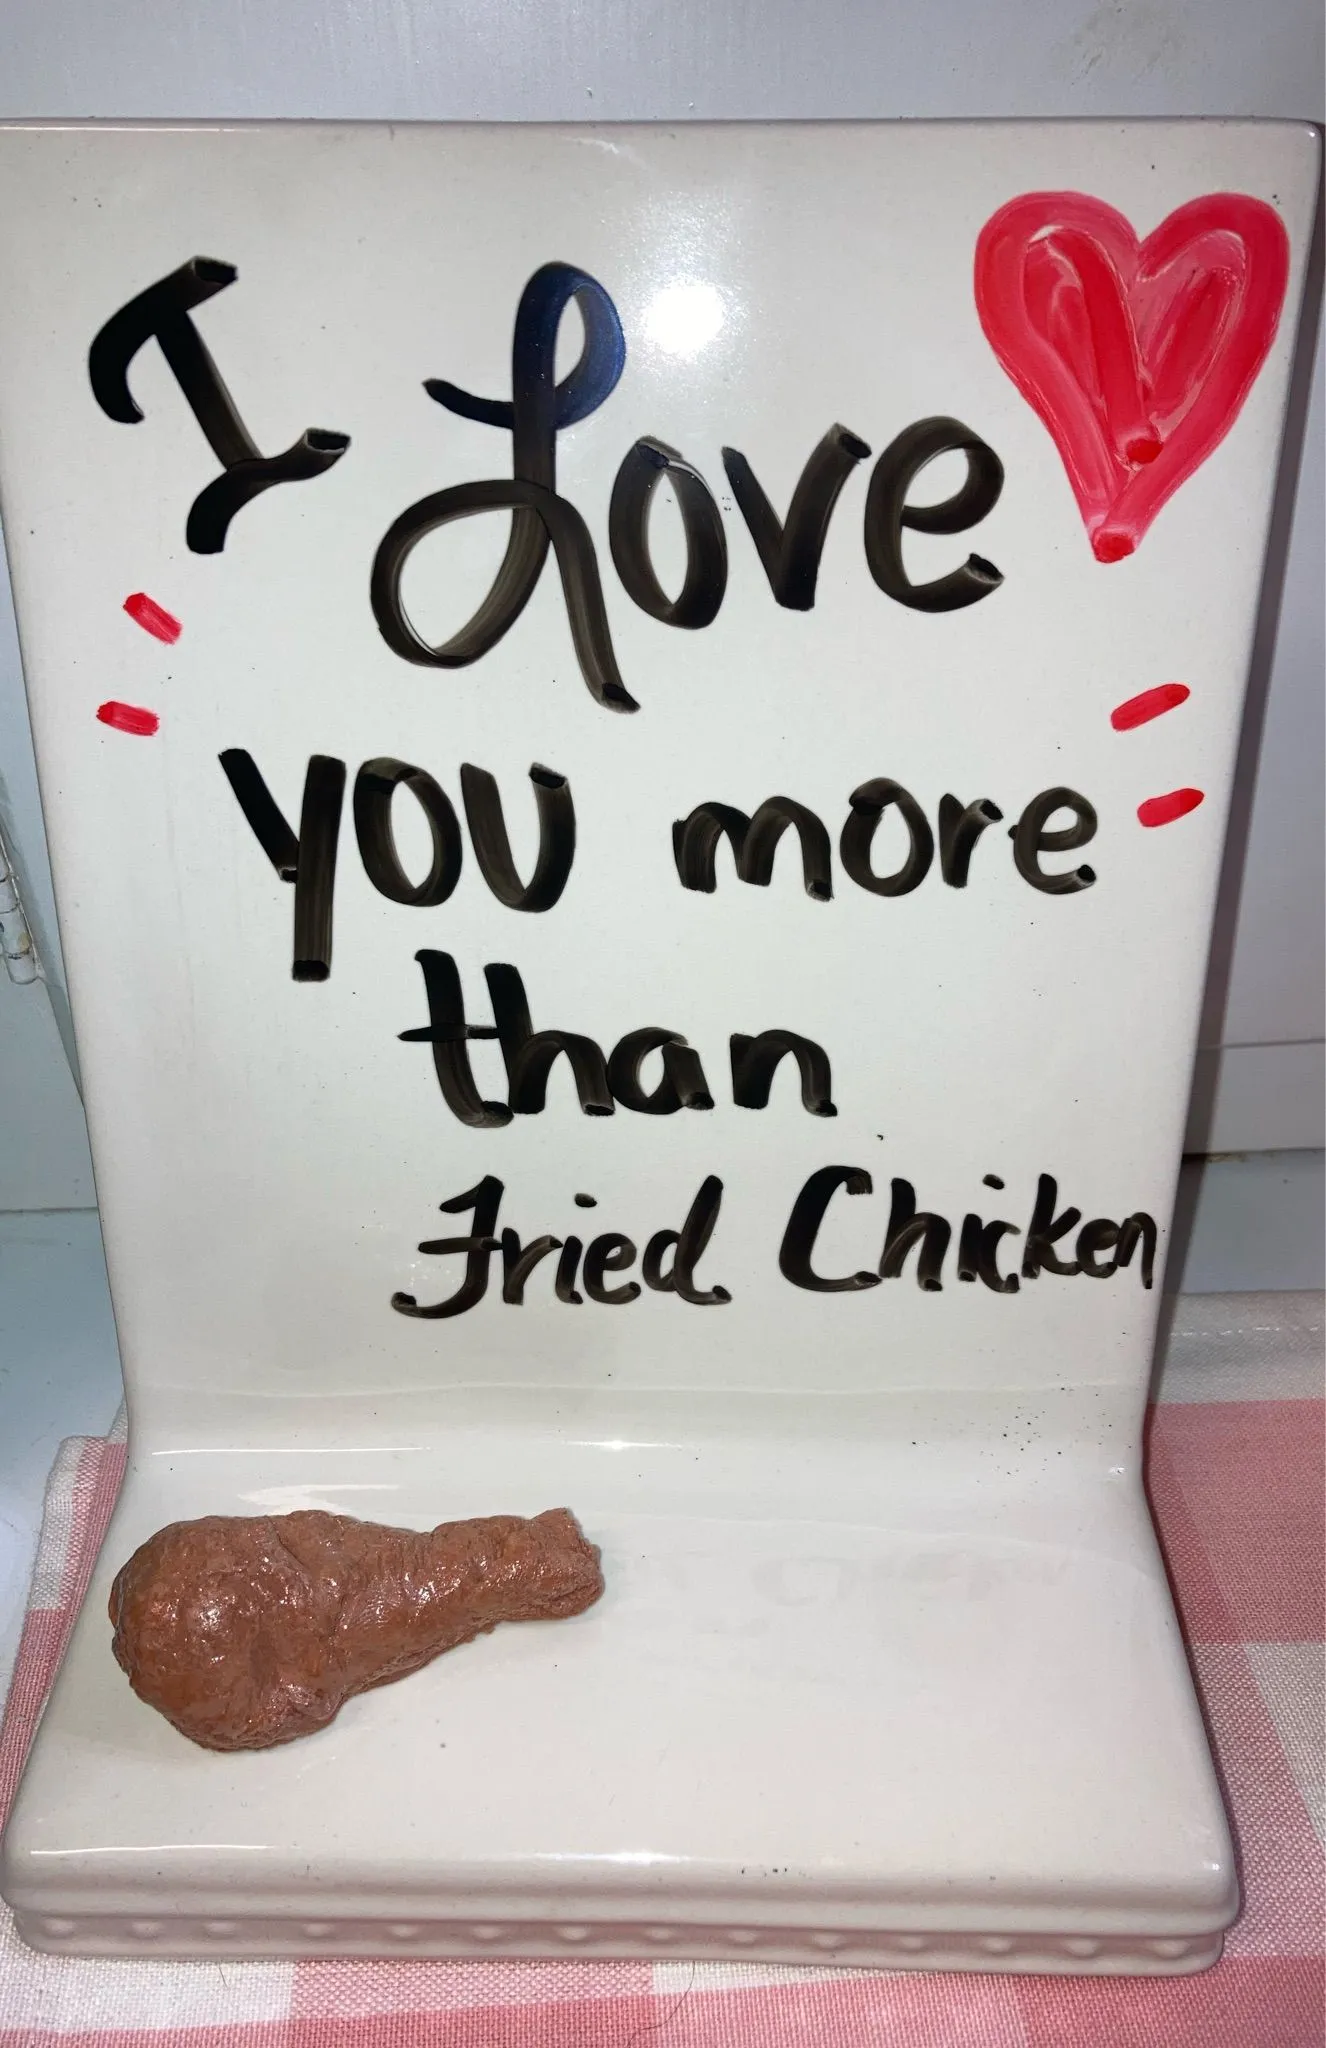 I Love
you more
than
Fried Chicken